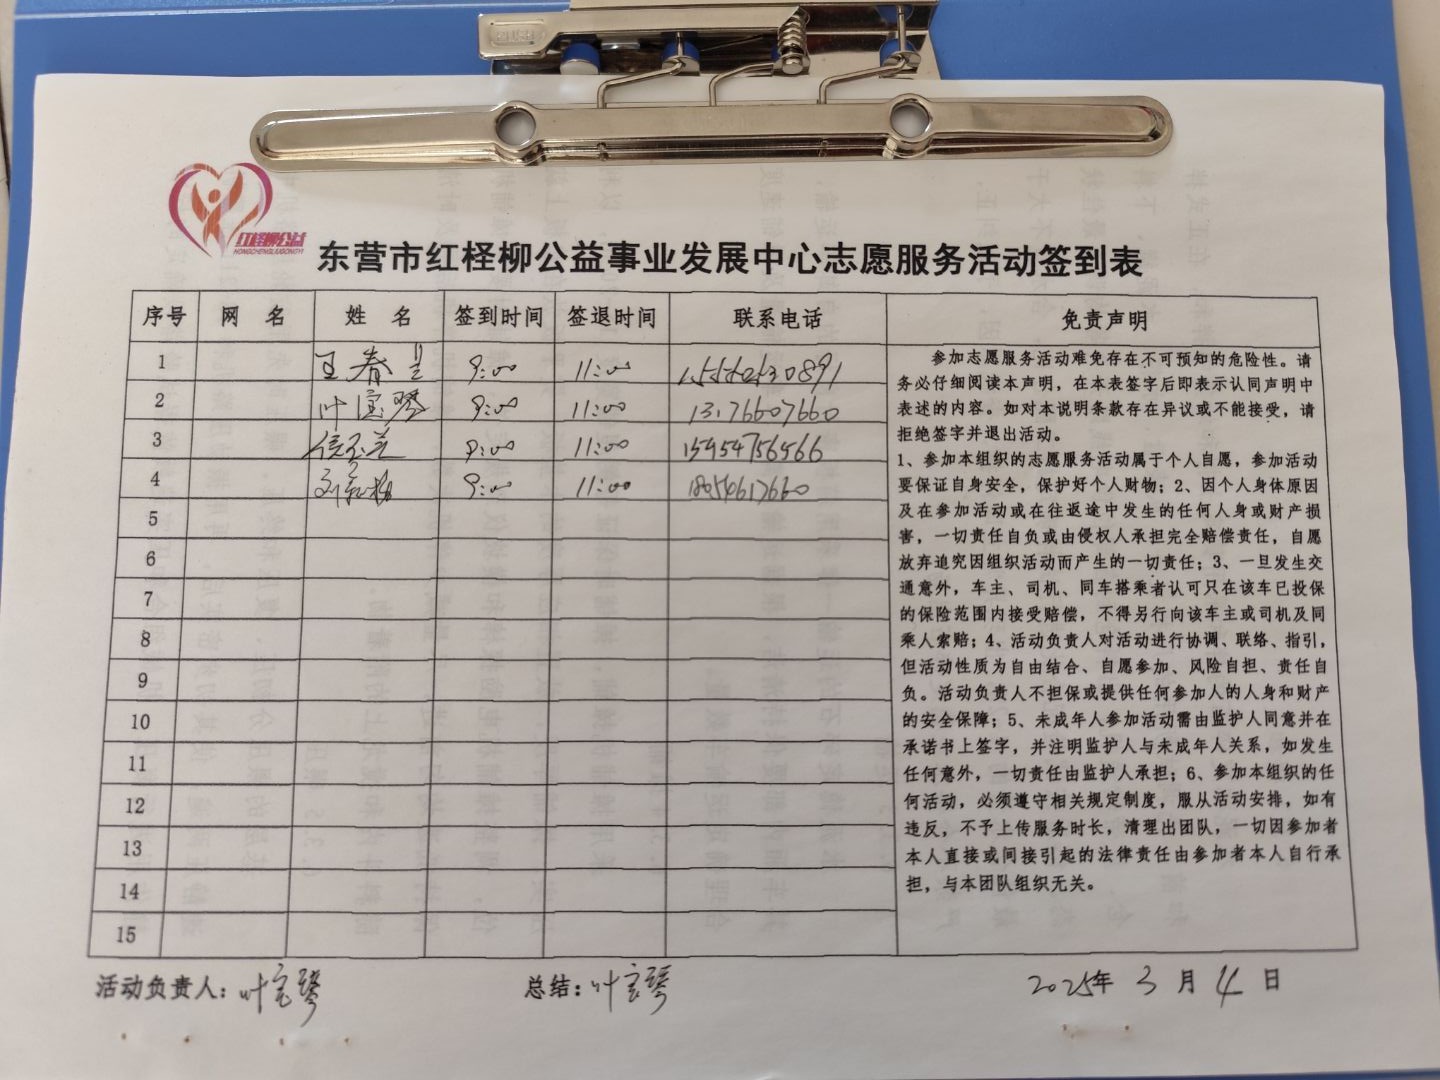 红柽柳公益
HONGCHENGLIUGONGYI
东营市红柽柳公益事业发展中心志愿服务活动签到表
序号 网 名 姓 名 签到时间 签退时间 联系电话 免责声明
1 王春兰 9:00 11:00
2 叶宝琴 9:00 11:00 13176607660
3 9:00 11:00 15954756566
4 9:00 11:00 18054617660
5
6
7
8
9
10
11
12
13
14
15
参加志愿服务活动难免存在不可预知的危险性。请
务必仔细阅读本声明，在本表签字后即表示认同声明中
表述的内容。如对本说明条款存在异议或不能接受，请
拒绝签字并退出活动。
1、参加本组织的志愿服务活动属于个人自愿，参加活动
要保证自身安全，保护好个人财物；2、因个人身体原因
及在参加活动或在往返途中发生的任何人身或财产损
害，一切责任自负或由侵权人承担完全赔偿责任，自愿
放弃追究因组织活动而产生的一切责任；3、一旦发生交
通意外，车主、司机、同车搭乘者认可只在该车已投保
的保险范围内接受赔偿，不得另行向该车主或司机及同
乘人索赔；4、活动负责人对活动进行协调、联络、指引，
但活动性质为自由结合、自愿参加、风险自担、责任自
负。活动负责人不担保或提供任何参加人的人身和财产
的安全保障；5、未成年人参加活动需由监护人同意并在
承诺书上签字，并注明监护人与未成年人关系，如发生
任何意外，一切责任由监护人承担；6、参加本组织的任
何活动，必须遵守相关规定制度，服从活动安排，如有
违反，不予上传服务时长，清理出团队，一切因参加者
本人直接或间接引起的法律责任由参加者本人自行承
担，与本团队组织无关。
活动负责人：叶宝琴 总结：叶宝琴 2025年 3 月 4 日